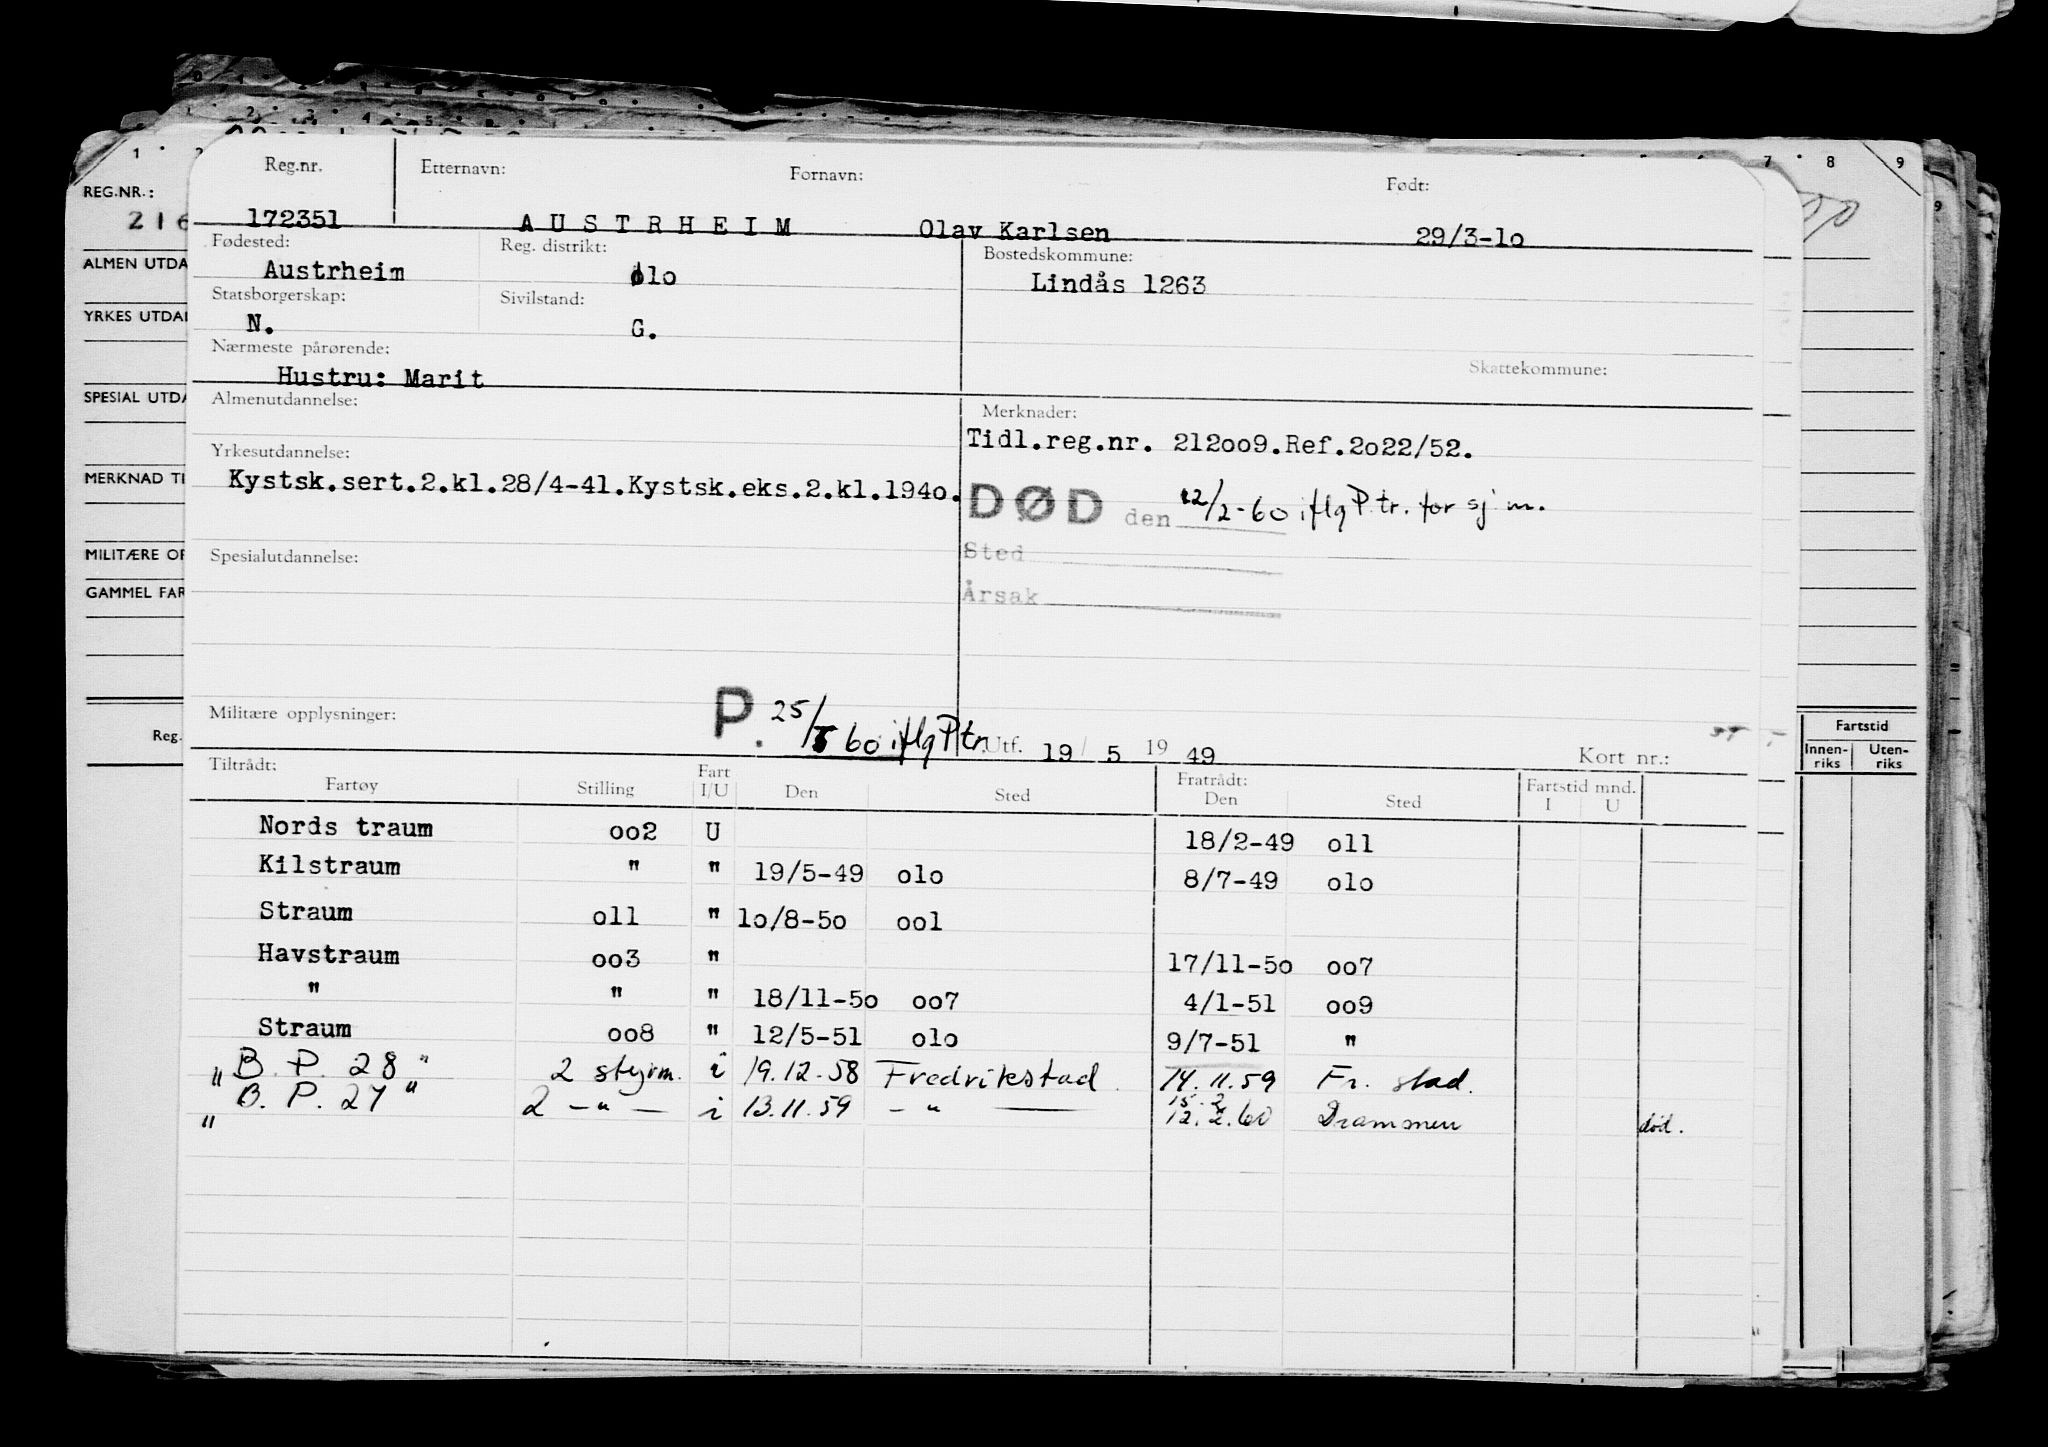 1 2 3 4
1 2 7 8 9
9
REG.NR.:
216
ALMEN UTDA
YRKES UTDAN
SPESIAL UTDA
MERKNAD TI
MILITÆRE OP
GAMMEL FAR
Reg.
Fartstid
Innen-riks Uten-riks
Reg.nr. Etternavn: Fornavn: Født:
172351 AUSTRHEIM Olav Karlsen 29/3-1o
Fødested: Reg. distrikt: Bostedskommune:
Austrheim o1o Lindås 1263
Statsborgerskap: Sivilstand:
N. G.
Nærmeste pårørende: Skattekommune:
Hustru: Marit
Almenutdannelse: Merknader:
Tidl.reg.nr. 212oo9.Ref.2o22/52.
Yrkesutdannelse:
Kystsk.sert.2.kl.28/4-41.Kystsk.eks.2.kl.194o.
DØD den 12/2-60 iflg P.tr. for sjm.
Sted
Spesialutdannelse:
Årsak
Militære opplysninger: P. 25/5 60 iflg P tr. Utf. 19/5 19 49 Kort nr.:
Tiltrådt: Fratrådt: Fartstid mnd.
Fartøy Stilling Fart I/U Den Sted Den Sted I U
Nords traum oo2 U 18/2-49 o11
Kilstraum " " 19/5-49 o1o 8/7-49 o1o
Straum o11 " 1o/8-5o oo1
Havstraum oo3 " 17/11-5o oo7
" " " 18/11-5o oo7 4/1-51 oo9
Straum oo8 " 12/5-51 o1o 9/7-51 "
„B. P. 28" 2 styrm. i 19.12.58 Fredrikstad 14.11.59 Fr. stad.
15.2
„B. P. 27" 2 -"- i 13.11.59 -"- 12.2.60 Drammen død.